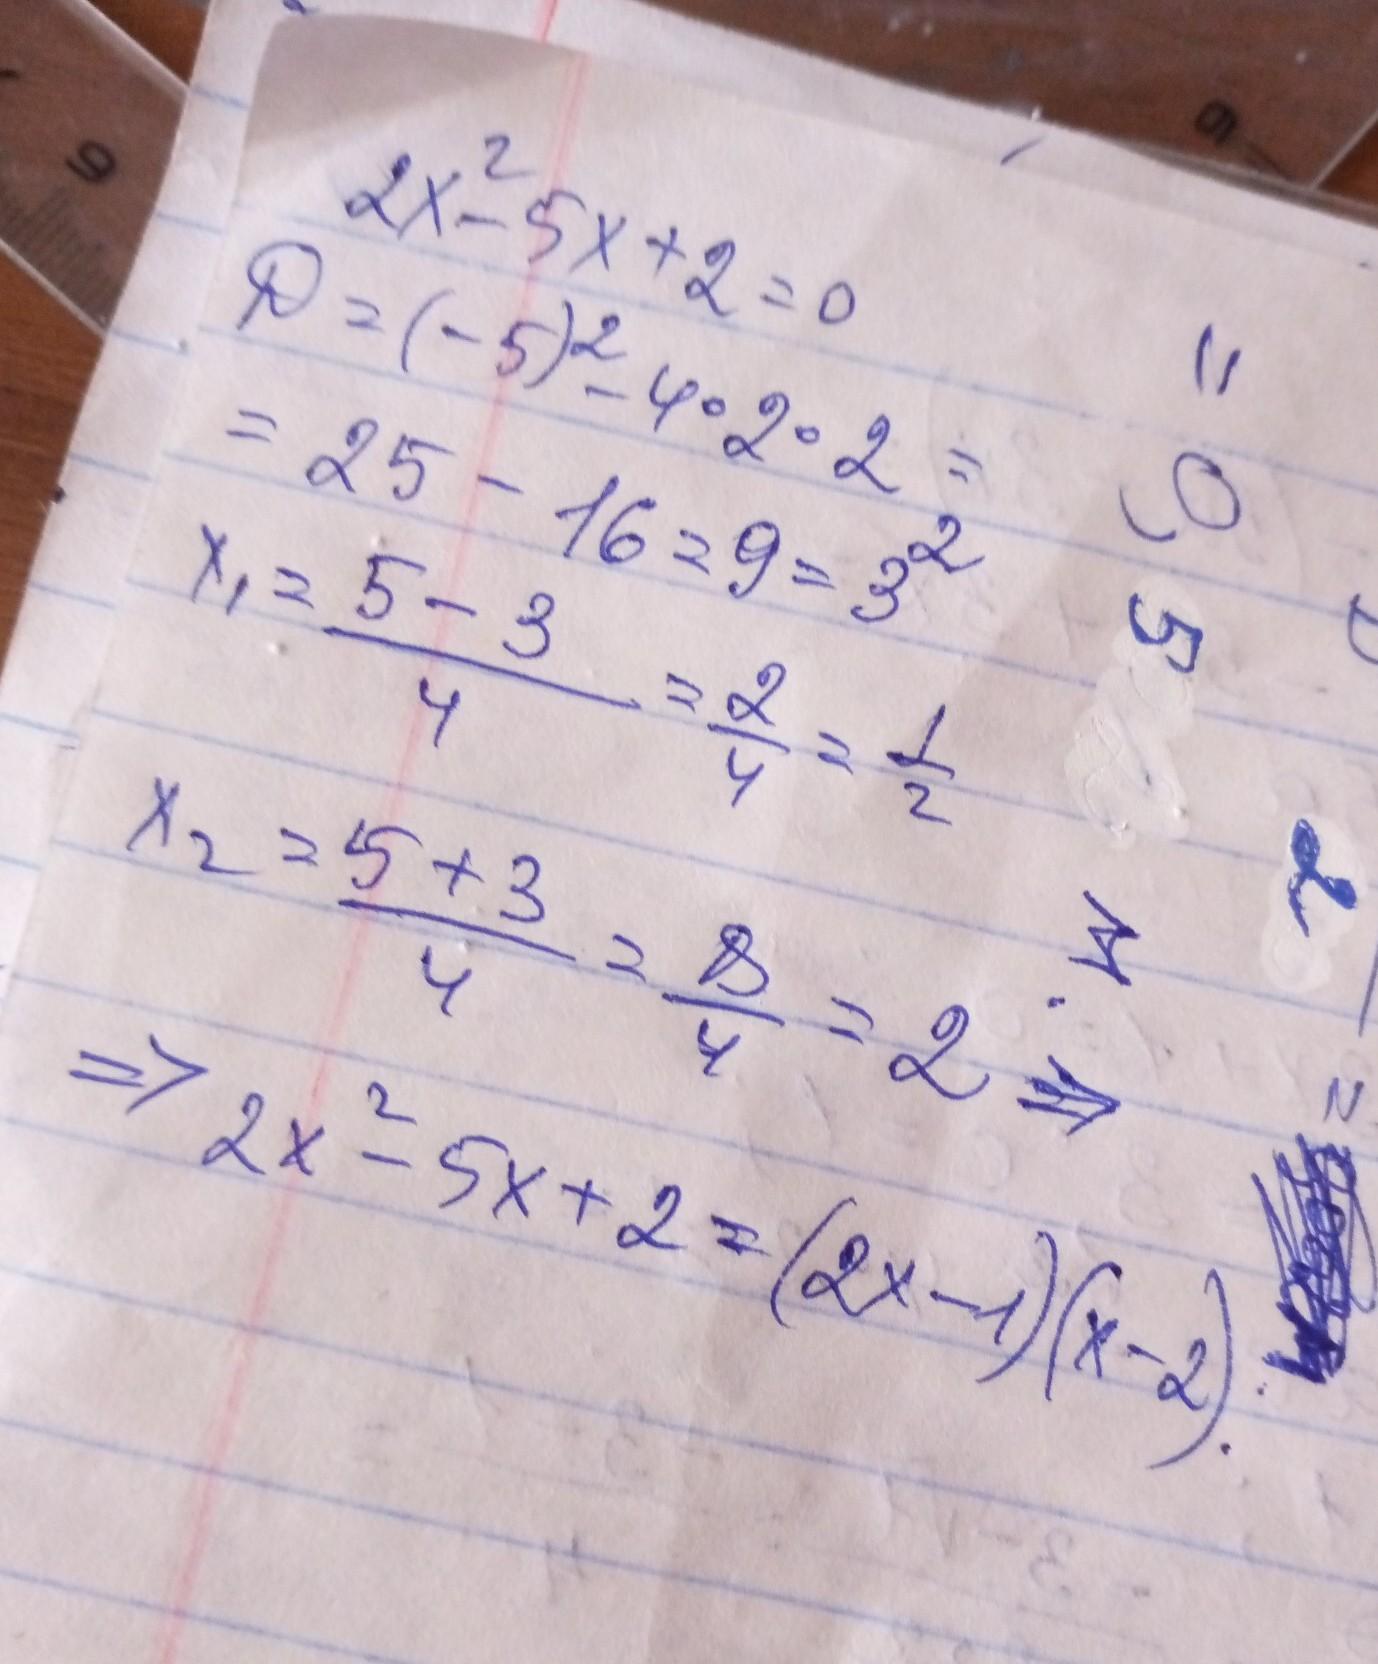 2x² - 5x + 2 = 0
D = (-5)² - 4 · 2 · 2 =
= 25 - 16 = 9 = 3²
x₁ = (5 - 3)/4 = 2/4 = 1/2
x₂ = (5 + 3)/4 = 8/4 = 2 ⇒
⇒ 2x² - 5x + 2 = (2x - 1)(x - 2).